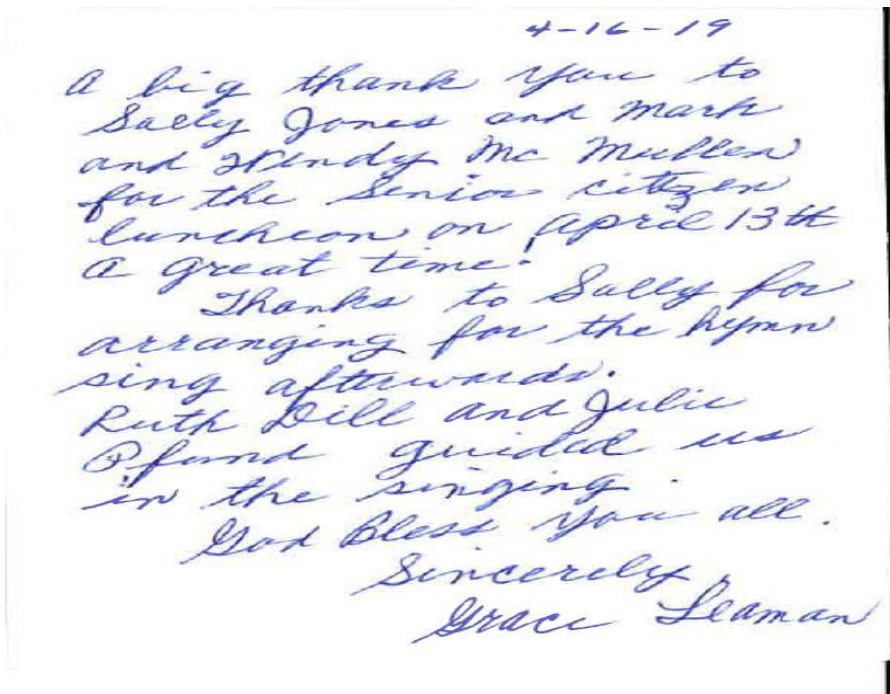 4-16-19
A big thank you to
Sally Jones and Mark
and Wendy Mc Mullen
for the Senior citizen
luncheon on April 13th
A great time!
Thanks to Sally for
arranging for the hymn
sing afterwards.
Ruth Dill and Julie
Pfund guided us
in the singing.
God Bless you all.
Sincerely,
Grace Leaman